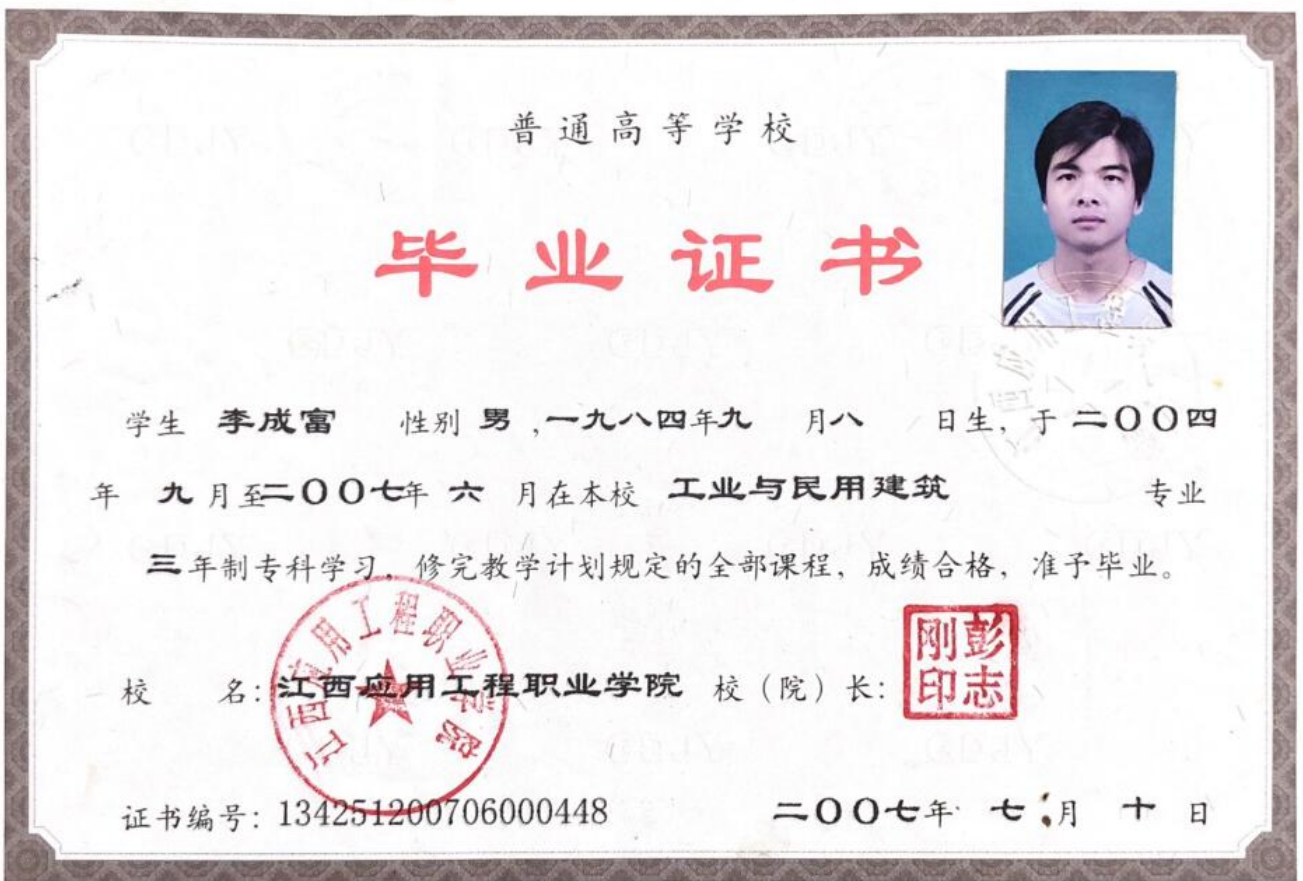 普通高等学校
毕业证书
学生 李成富 性别 男 ,一九八四年九 月八 日生, 于 二〇〇四
年 九 月至二〇〇七年 六 月在本校 工业与民用建筑 专业
三年制专科学习, 修完教学计划规定的全部课程, 成绩合格, 准予毕业。
江西应用工程职业学院
彭志刚印
校 名: 江西应用工程职业学院 校(院)长:
证书编号: 134251200706000448 二〇〇七年 七 月 十 日